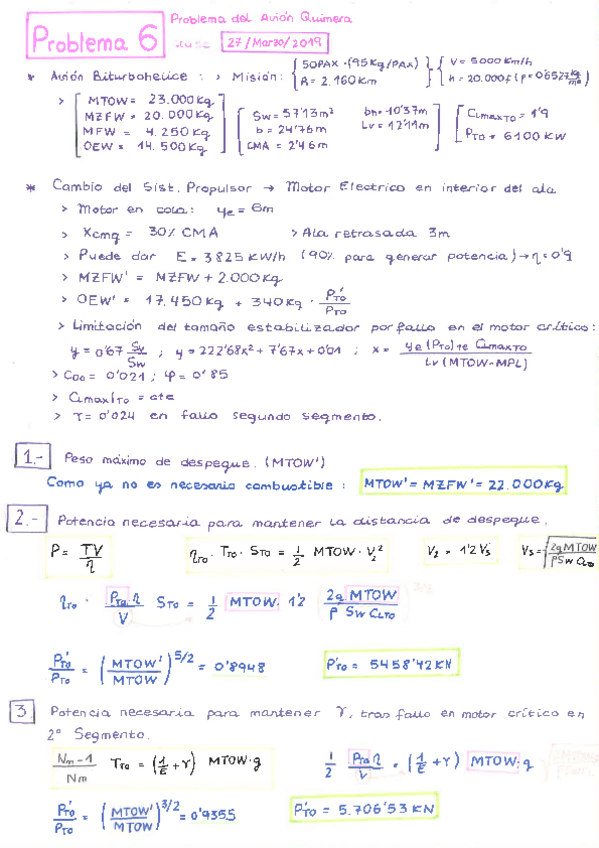 Problema del Avión Quimera
Problema 6 clase 27/Marzo/2019
* Avión Biturbohelice : > Misión: { 50PAX · (95Kg/PAX) R = 2.160 Km } { V = 5000 Km/h h = 20.000ft (ρ = 0'6527 kg/m³)
> [ MTOW = 23.000Kg
MZFW = 20.000 Kg
MFW = 4.250 Kg
OEW = 14.500 Kg ]
[ Sw = 57'13m² bh = 10'37m
b = 24'76 m Lv = 12'11m
CMA = 2'46m ]
[ CLmaxTO = 1'9
PTO = 6100 KW
* Cambio del Sist. Propulsor → Motor Electrico en interior del ala
> Motor en cola: ye = 6m
> Xcmg = 30% CMA > Ala retrasada 3m
> Puede dar E = 3825 KW/h (90% para generar potencia) → η = 0'9
> MZFW' = MZFW + 2.000 Kg
> OEW' = 17.450 Kg + 340 Kg · P'TO/PTO
> Limitación del tamaño estabilizador por fallo en el motor crítico:
y = 0'67 Sv/Sw ; y = 222'68x² + 7'67x + 0'01 ; x = ye (PTO)te CLmaxTO / Lv (MTOW-MPL)
> CD0 = 0'021 ; φ = 0'85
> CLmax)TO = cte
> γ = 0'024 en fallo segundo segmento.
1.- Peso máximo de despegue. (MTOW')
Como ya no es necesario combustible : MTOW' = MZFW' = 22.000Kg
2.- Potencia necesaria para mantener la distancia de despegue.
P = TV/η ηTO · TTO · STO = 1/2 MTOW · V₂² V₂ = 1'2 Vs Vs = √(2g MTOW / ρ Sw CLTO)
ηTO · PTO η / V STO = 1/2 MTOW · 1'2 2g MTOW / ρ Sw CLTO
P'TO/PTO = (MTOW'/MTOW)^5/2 = 0'8948 P'TO = 5458'42 KN
3. Potencia necesaria para mantener γ, tras fallo en motor crítico en
2º Segmento.
Nm-1/Nm TTO = (1/E + γ) MTOW·g 1/2 PTO η / V = (1/E + γ) MTOW · g
P'TO/PTO = (MTOW'/MTOW)^3/2 = 0'9355 P'TO = 5.706'53 KN